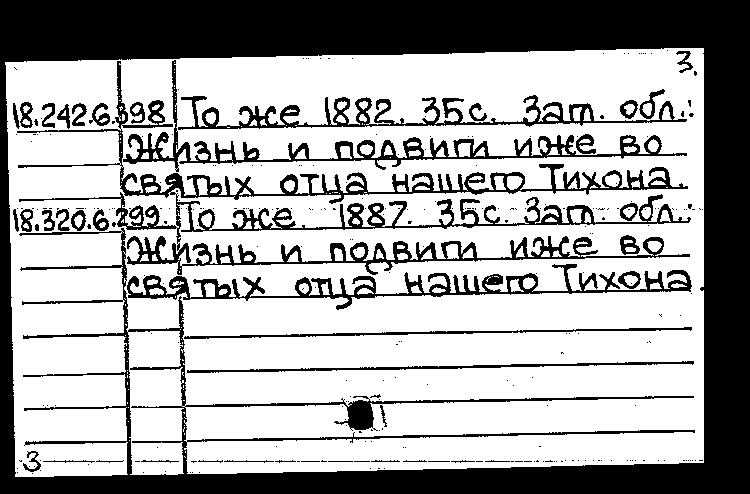 3.
18.242.6.398 То же. 1882. 35с. Заг. обл.:
Жизнь и подвиги иже во
святых отца нашего Тихона.
18.320.6.299. То же. 1887. 35с. Заг. обл.:
Жизнь и подвиги иже во
святых отца нашего Тихона.
3